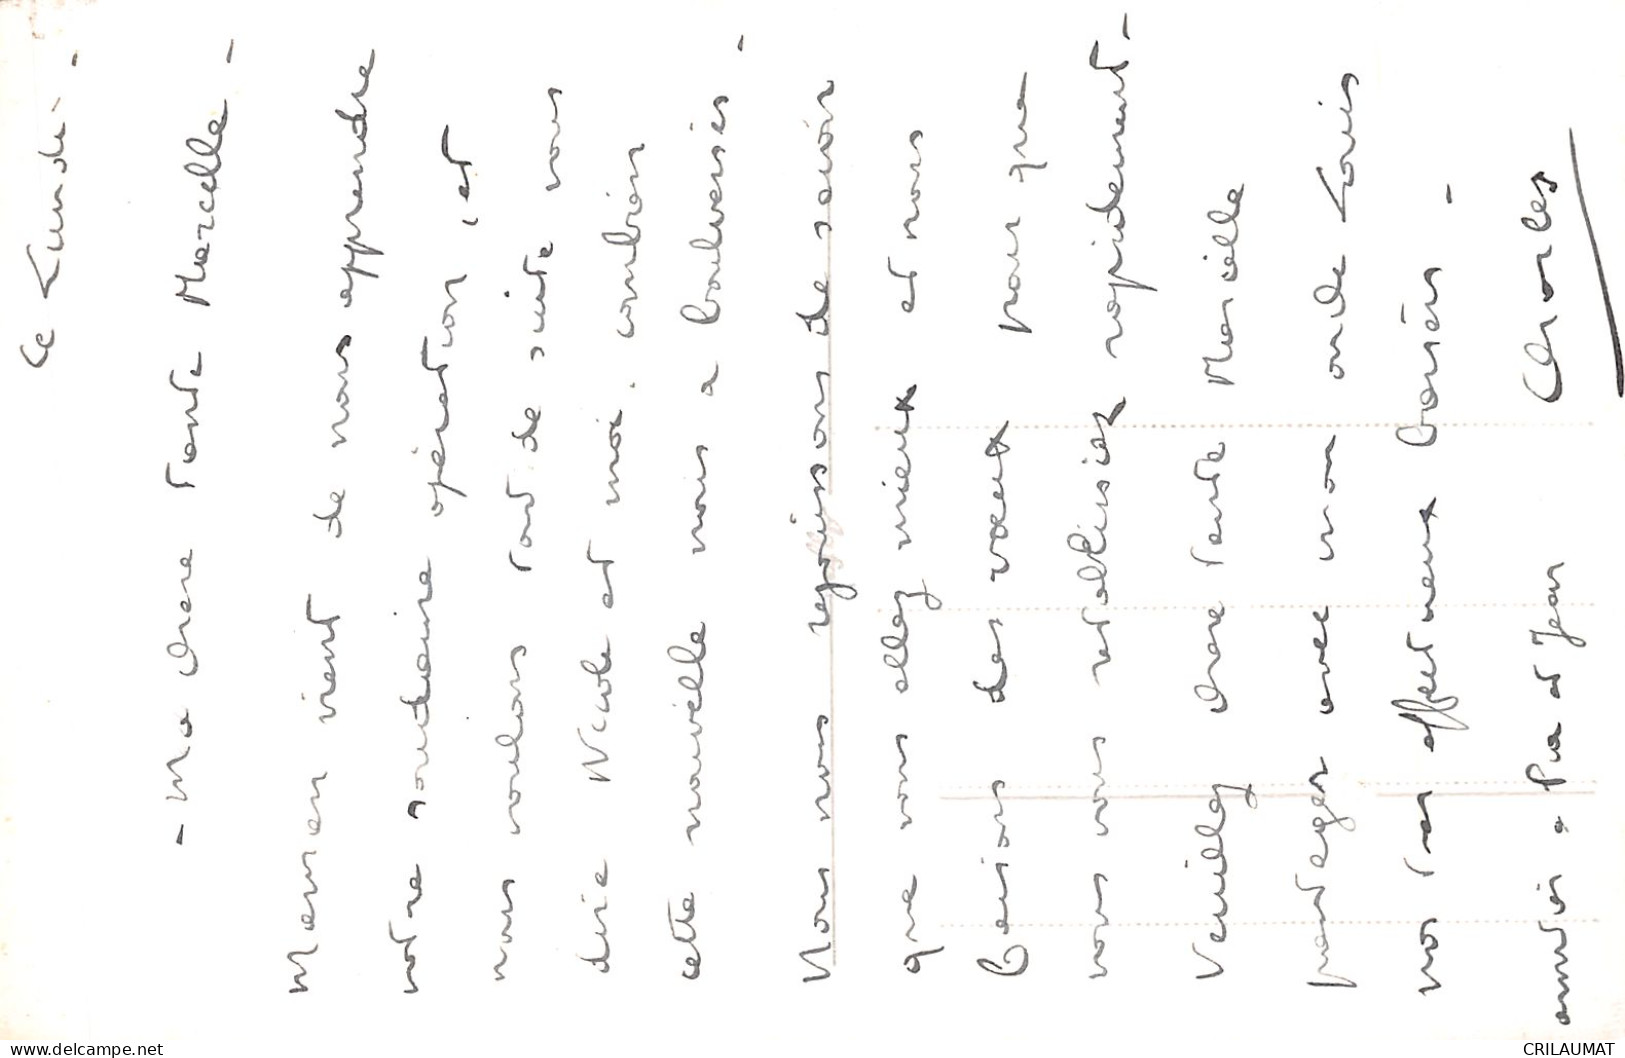 Ce Lundi -
- Ma chere Tante Marcelle -
Maman vient de nous apprendre
votre soudaine opération, et
nous voulons tout de suite vous
dire Nicole et moi, combien
cette nouvelle nous a boulversés -
Nous nous rejouissons de savoir
que vous allez mieux et nous
faisons des voeux pour que
vous vous retablissiez rapidement -
Veuillez chere Tante Marcelle
partager avec mon oncle Louis
nos tres affectueux baisers -
Charles
amitiés a Pia et Jean
www.delcampe.net
CRILAUMAT